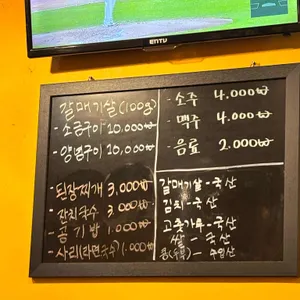 ENTV
갈매기살(100g)
- 소금구이 10,000₩
- 양념구이 10,000₩
- 된장찌개 3,000₩
- 잔치국수 3,000₩
- 공기밥 1.000₩
- 사리(라면국수) 1.000₩
- 소주 4.000₩
- 맥주 4.000₩
- 음료 2.000₩
갈매기살-국산
김치-국산
고춧가루-국산
쌀-국산
콩(두부)-수입산